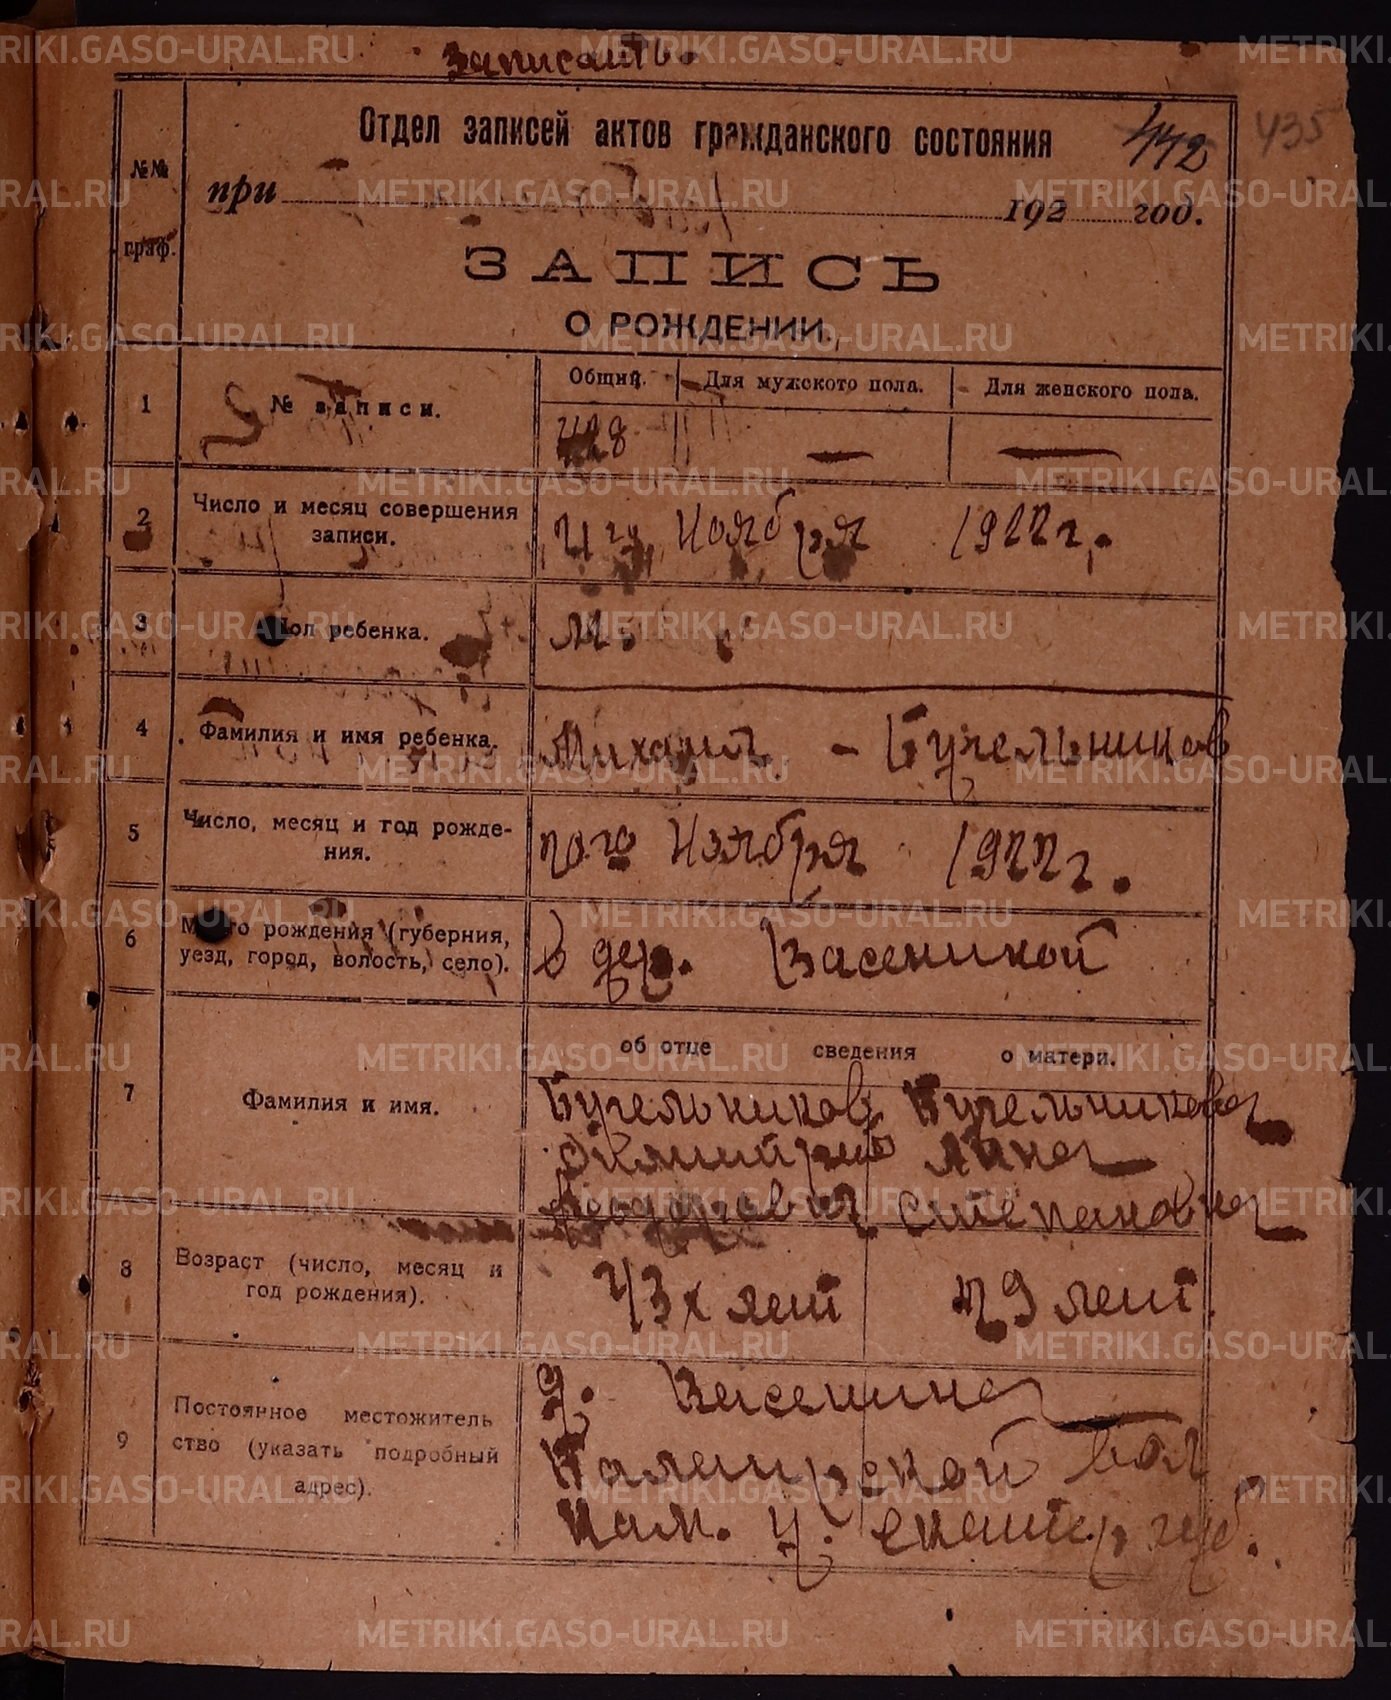 Записать.
Отдел записей актов гражданского состояния
442
435
№№ граф.
при 192 год.
ЗАПИСЬ
О РОЖДЕНИИ.
1 № записи.
Общий. Для мужского пола. Для женского пола.
428 — —
2 Число и месяц совершения записи.
Ноября 1922 г.
3 Пол ребенка.
м.
4 Фамилия и имя ребенка.
Михаил - Бучельников
5 Число, месяц и год рождения.
Ноября 1922 г.
6 Место рождения (губерния, уезд, город, волость, село).
В дер.
об отце сведения о матери.
7 Фамилия и имя.
Бучельников Бучельникова
Дмитрий Анна
Феодорович Степановна
8 Возраст (число, месяц и год рождения).
43х лет 29 лет.
9 Постоянное местожительство (указать подробный адрес).
д.
вол
Кам. у. Екатер. губ.
METRIKI.GASO-URAL.RU